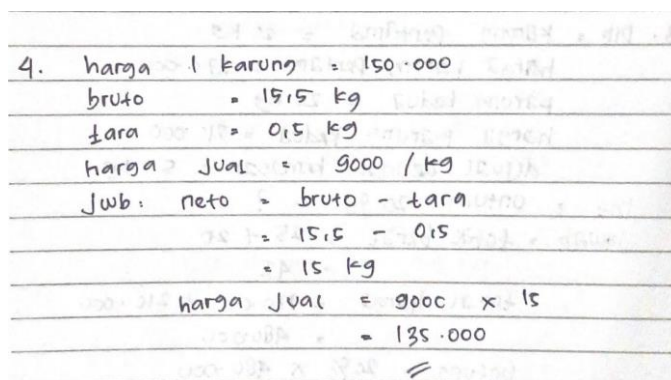 4. harga 1 karung = 150.000
bruto = 15,5 kg
tara = 0,5 kg
harga jual = 9000 / kg
Jwb : neto = bruto - tara
= 15,5 - 0,5
= 15 kg
harga jual = 9000 x 15
= 135.000